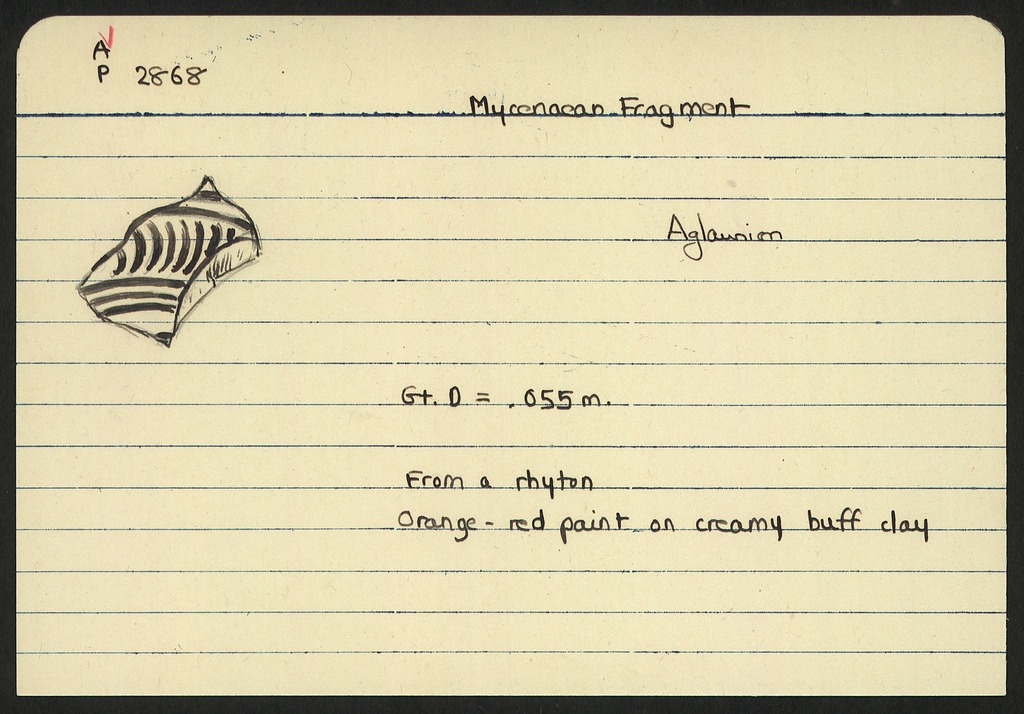 A
P 2868
Mycenaean Fragment
Aglaurion
Gt. D = .055 m.
From a rhyton
Orange-red paint on creamy buff clay